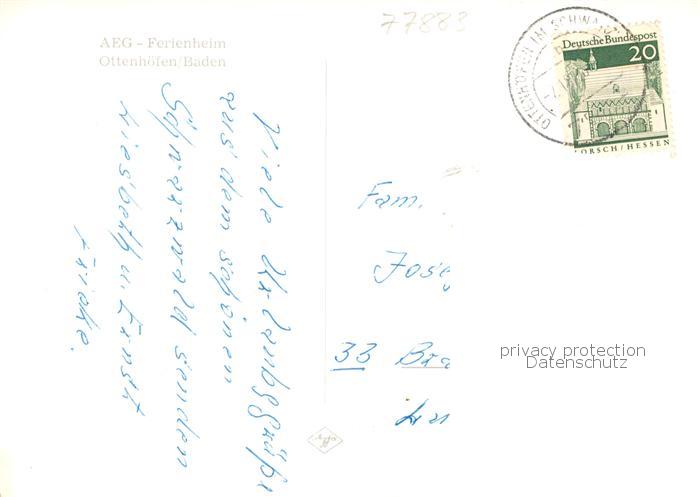 77883
AEG - Ferienheim
Ottenhöfen/Baden
Viele Urlaubsgrüße
aus dem schönen
Schwarzwald senden
Liesbeth u. Ernst
Fricke.
OTTENHÖFEN IM SCHWARZW
Deutsche Bundespost
20
LORSCH/HESSEN
Fam.
Jose
33 Bra
privacy protection
Datenschutz